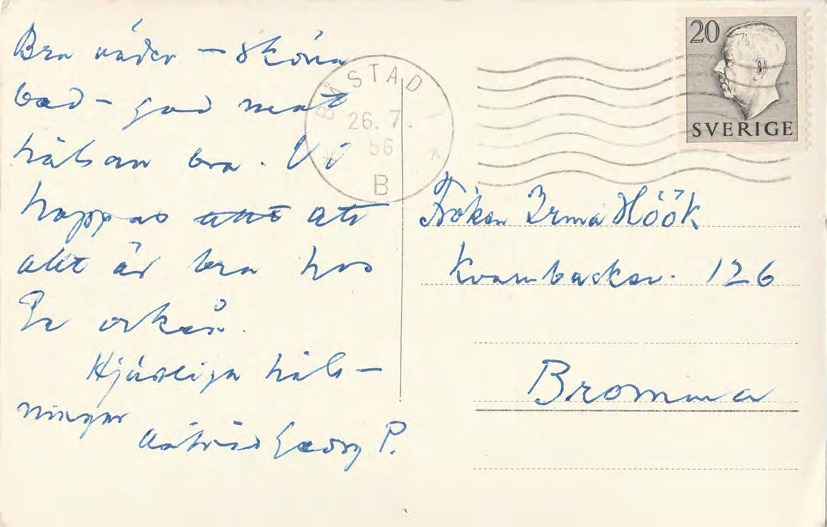 Bra väder – sköna
bad – god mat
hälsan bra. Vi
hoppas att att
allt är bra hos
Er också.
Hjärtliga häls-
ningar
Astrid Georg P.
BÅSTAD 1
26. 7.
56
B
20
SVERIGE
Fröken Irma Höök
Kvarnbacksv. 126
Bromma